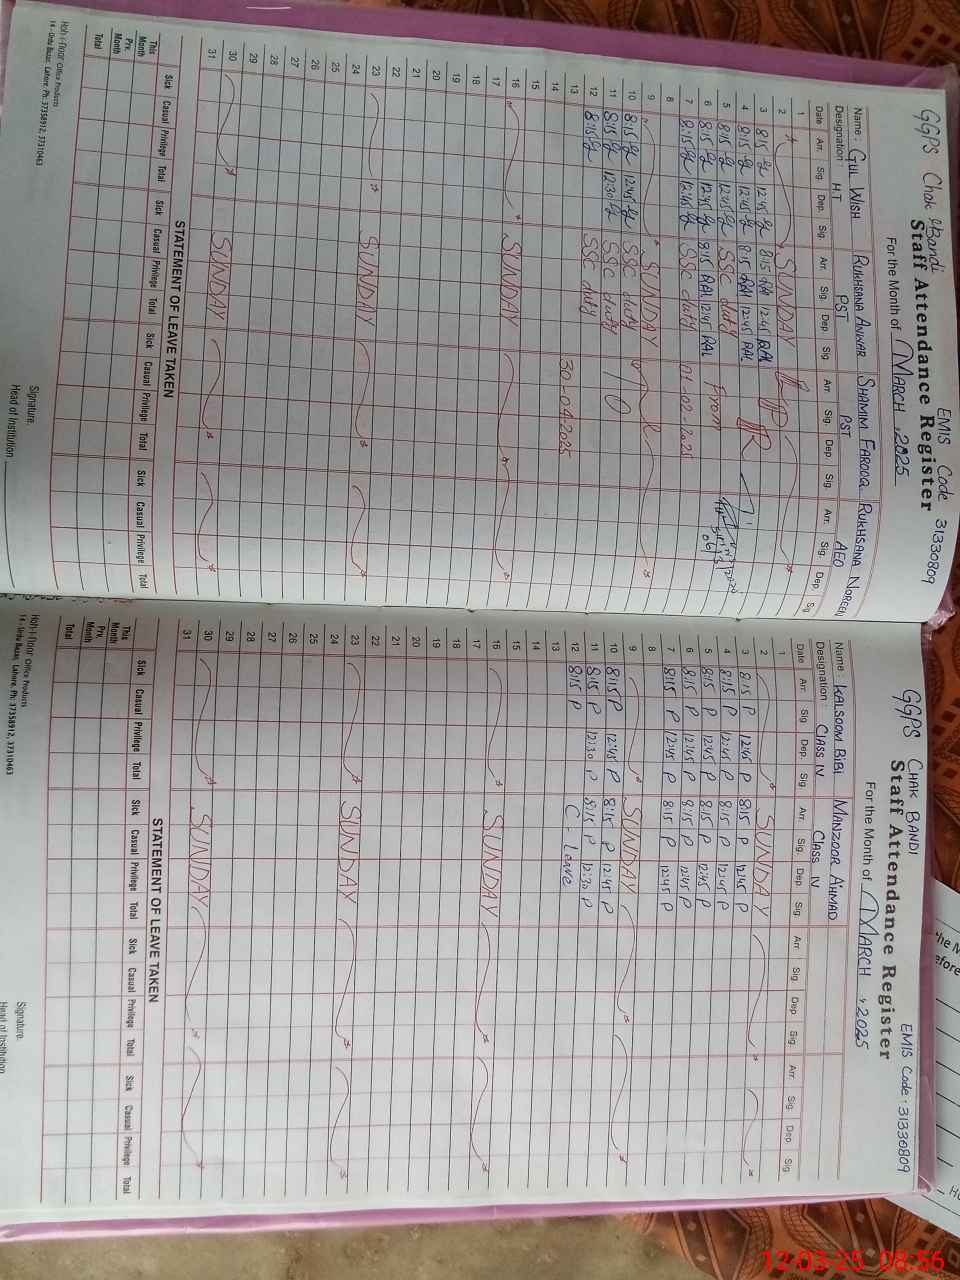 GGPS Chak Bandi EMIS Code 31330809
Staff Attendance Register
For the Month of MARCH, 2025
Name: GUL WISH RUKHSANA ANWAR SHAMIM FAROOQ RUKHSANA NOREEN
Designation: H.T PST PST AEO
Date Arr. Sig. Dep. Sig. Arr. Sig. Dep. Sig. Arr. Sig. Dep. Sig. Arr. Sig. Dep. Sig
1
2 SUNDAY
3 8:15 12:45 8:15 RA 12:45 RA
4 8:15 12:45 8:15 RA 12:45 RA
5 8:15 12:45 SSC duty From
6 8:15 12:45 8:15 RA 12:45 RA
7 8:15 12:45 SSC duty 01-02-2025
8
9 SUNDAY
10 8:15 12:45 SSC duty TO
11 8:15 12:30 SSC duty
12 8:15 SSC duty
13 30-04-2025
14
15
16 SUNDAY
17
18
19
20
21
22
23 SUNDAY
24
25
26
27
28
29
30 SUNDAY
31
STATEMENT OF LEAVE TAKEN
Sick Casual Privilege Total Sick Casual Privilege Total Sick Casual Privilege Total Sick Casual Privilege Total
This Month
Prv. Month
Total
Signature.
Roh-i-Noor Office Products
14 - Urdu Bazar, Lahore. Ph: 37358912, 37310463
Head of Institution
GGPS CHAK BANDI EMIS Code: 31330809
Staff Attendance Register
For the Month of MARCH, 2025
Name: KALSOOM BIBI MANZOOR AHMAD
Designation: Class IV Class IV
Date Arr. Sig. Dep. Sig. Arr. Sig. Dep. Sig. Arr. Sig. Dep. Sig. Arr. Sig. Dep. Sig
1
2 SUNDAY
3 8:15 P 12:45 P 8:15 P 12:45 P
4 8:15 P 12:45 P 8:15 P 12:45 P
5 8:15 P 12:45 P 8:15 P 12:45 P
6 8:15 P 12:45 P 8:15 P 12:45 P
7 8:15 P 12:45 P 8:15 P 12:45 P
8
9 SUNDAY
10 8:15 P 12:45 P 8:15 P 12:45 P
11 8:15 P 12:30 P 8:15 P 12:30 P
12 8:15 P C - Leave
13
14
15
16 SUNDAY
17
18
19
20
21
22
23 SUNDAY
24
25
26
27
28
29
30 SUNDAY
31
STATEMENT OF LEAVE TAKEN
Sick Casual Privilege Total Sick Casual Privilege Total Sick Casual Privilege Total Sick Casual Privilege Total
This Month
Prv. Month
Total
Signature.
Roh-i-Noor Office Products
14 - Urdu Bazar, Lahore. Ph: 37358912, 37310463
Head of Institution
12-03-25 08:56